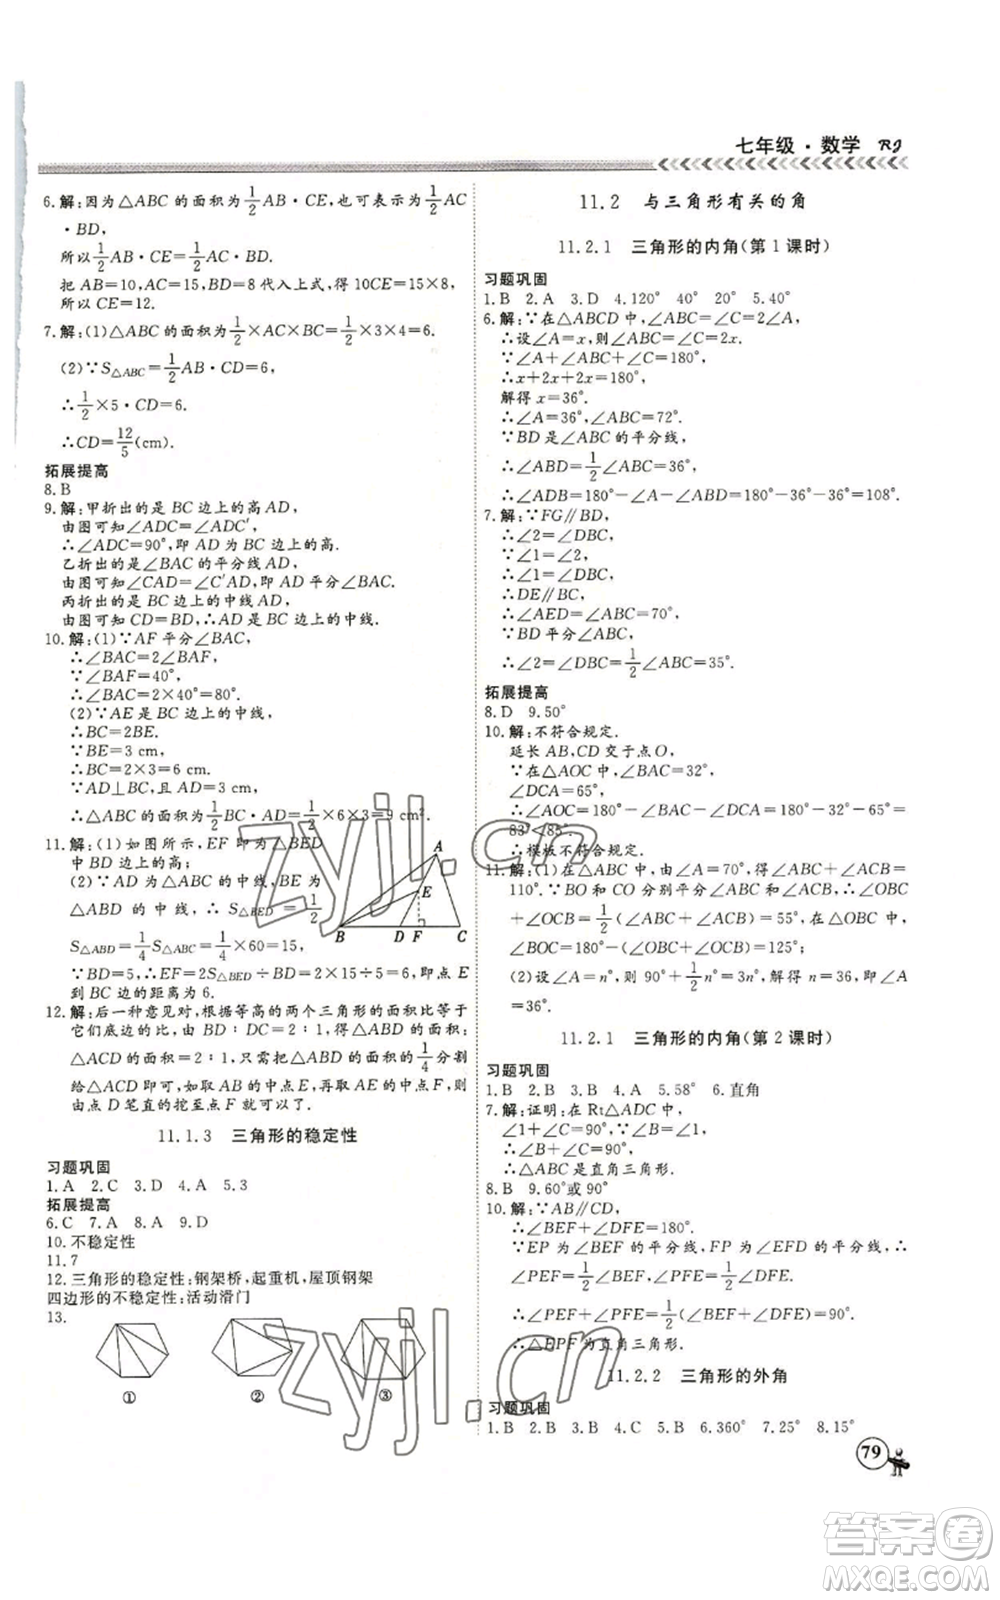 七年级·数学 RJ
6.解:因为△ABC的面积为1/2AB·CE,也可为1/2AC
·BD,
所以1/2AB·CE=1/2AC·BD.
把AB=10,AC=15,BD=8代入上式,得10×CE=15×8.
所以CE=12.
7.解:(1)△ABC的面积为1/2×AC×BC=1/2×3×4=6.
(2)∵S△ABC=1/2AB·CD=6,
∴1/2×5·CD=6.
∴CD=12/5(cm).
拓展提高
8.B
9.解:甲折出的是BC边上的高AD,
由图可知∠ADC=∠ADC′,
∴∠ADC=90°,即AD为BC边上的高.
乙折出的∠BAC的平分线AD,
由图可知∠CAD=∠C′AD,即AD平分∠BAC.
丙折出的是BC边上的中线AD,
由图可知CD=BD,∴AD是BC边上的中线.
10.解:(1)∵AF平分∠BAC,
∴∠BAC=2∠BAF,
∵∠BAF=40°,
∴∠BAC=2×40°=80°.
(2)∵AE是BC边上的中线,
∴BC=2BE.
∵BE=3 cm,
∴BC=2×3=6 cm.
∵AD⊥BC,且AD=3 cm,
∴△ABC的面积为1/2BC·AD=1/2×6×3=9 cm².
11.解:(1)如图所示,EF即为△BED
中BD边上的高;
(2)∵AD为△ABC的中线,BE为
△ABD的中线,∴S△BED=1/2
S△ABD=1/4S△ABC=1/4×60=15,
∵BD=5,∴EF=2S△BED÷BD=2×15÷5=6,即点E
到BC边的距离为6.
A
E
B D F C
12.解:后一种意见对,根据等高的两个三角形的面积比等于
它们底边的比,由BD∶DC=2∶1,得△ABD的面积∶
△ACD的面积=2∶1,只需把△ABD的面积的1/4分割
给△ACD即可,如取AB的中点E,再取AE的中点F,则
由点D笔直的挖至点F就可以了.
11.1.3 三角形的稳定性
习题巩固
1.A 2.C 3.D 4.A 5.3
拓展提高
6.C 7.A 8.A 9.D
10.不稳定性
11.7
12.三角形的稳定性:钢架桥,起重机,屋顶钢架
四边形的不稳定性:活动滑门
13.
① ② ③
11.2 与三角形有关的角
11.2.1 三角形的内角(第1课时)
习题巩固
1.B 2.A 3.D 4.120° 40° 20° 5.40°
6.解:∵在△ABCD中,∠ABC=∠C=2∠A,
∴设∠A=x,∴∠ABC=∠C=2x.
∵∠A+∠ABC+∠C=180°,
∴x+2x+2x=180°,
解得x=36°.
∴∠A=36°,∠ABC=72°.
∵BD是∠ABC的平分线,
∴∠ABD=1/2∠ABC=36°,
∴∠ADB=180°-∠A-∠ABD=180°-36°-36°=108°.
7.解:∵FG∥BD,
∴∠2=∠DBC.
∵∠1=∠2,
∴∠1=∠DBC,
∴DE∥BC,
∴∠AED=∠ABC=70°,
∵BD平分∠ABC,
∴∠2=∠DBC=1/2∠ABC=35°.
拓展提高
8.D 9.50°
10.解:不符合规定.
延长AB,CD交于点O,
∵在△AOC中,∠BAC=32°,
∠DCA=65°,
∴∠AOC=180°-∠BAC-∠DCA=180°-32°-65°=
83°<85°.
∴模板不符合规定.
11.解:(1)在△ABC中,∠A=70°,得∠ABC+∠ACB=
110°.∵BO和CO分别平分∠ABC和∠ACB,∴∠OBC
+∠OCB=1/2(∠ABC+∠ACB)=55°,在△OBC中,
∠BOC=180°-(∠OBC+∠OCB)=125°;
(2)设∠A=n°,则90°+1/2n°=3n°,解得n=36,即∠A
=36°.
11.2.1 三角形的内角(第2课时)
习题巩固
1.B 2.B 3.B 4.A 5.58° 6.直角
7.解:证明:在Rt△ADC中,
∠1+∠C=90°,∵∠B=∠1,
∴∠B+∠C=90°,
∴△ABC是直角三角形.
8.B 9.60°或90°
10.解:∵AB∥CD,
∴∠BEF+∠DFE=180°.
∵EP为∠BEF的平分线,FP为∠EFD的平分线,∴
∠PEF=1/2∠BEF,∠PFE=1/2∠DFE,
∴∠PEF+∠PFE=1/2(∠BEF+∠DFE)=90°.
∴△EPF为直角三角形.
11.2.2 三角形的外角
习题巩固
1.B 2.B 3.B 4.C 5.B 6.360° 7.25° 8.15°
79
zyjl.cn
zyjl.cn
答案圈
MXQE.COM